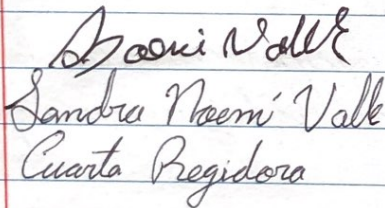 Noemi Valle
Sandra Noemí Valle
Cuarta Regidora